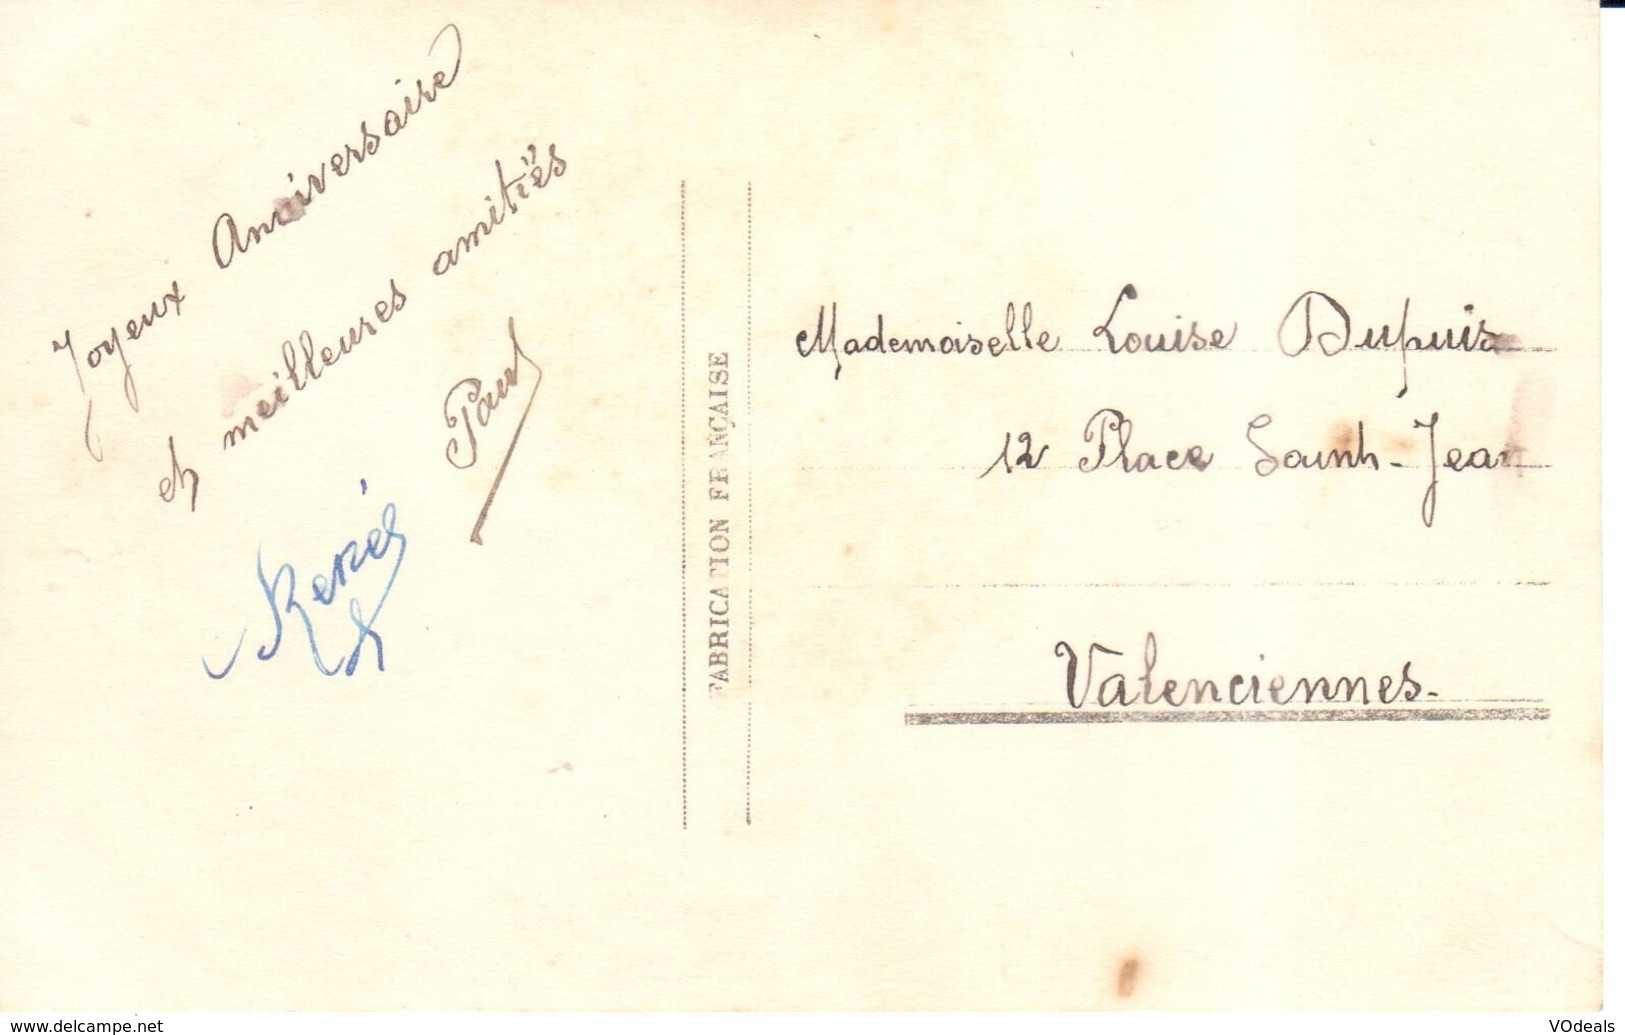 Joyeux Anniversaire
et meilleures amitiés
Paul
René
FABRICATION FRANÇAISE
Mademoiselle Louise Dupuis
12 Place Saint-Jean
Valenciennes-
www.delcampe.net
VOdeals